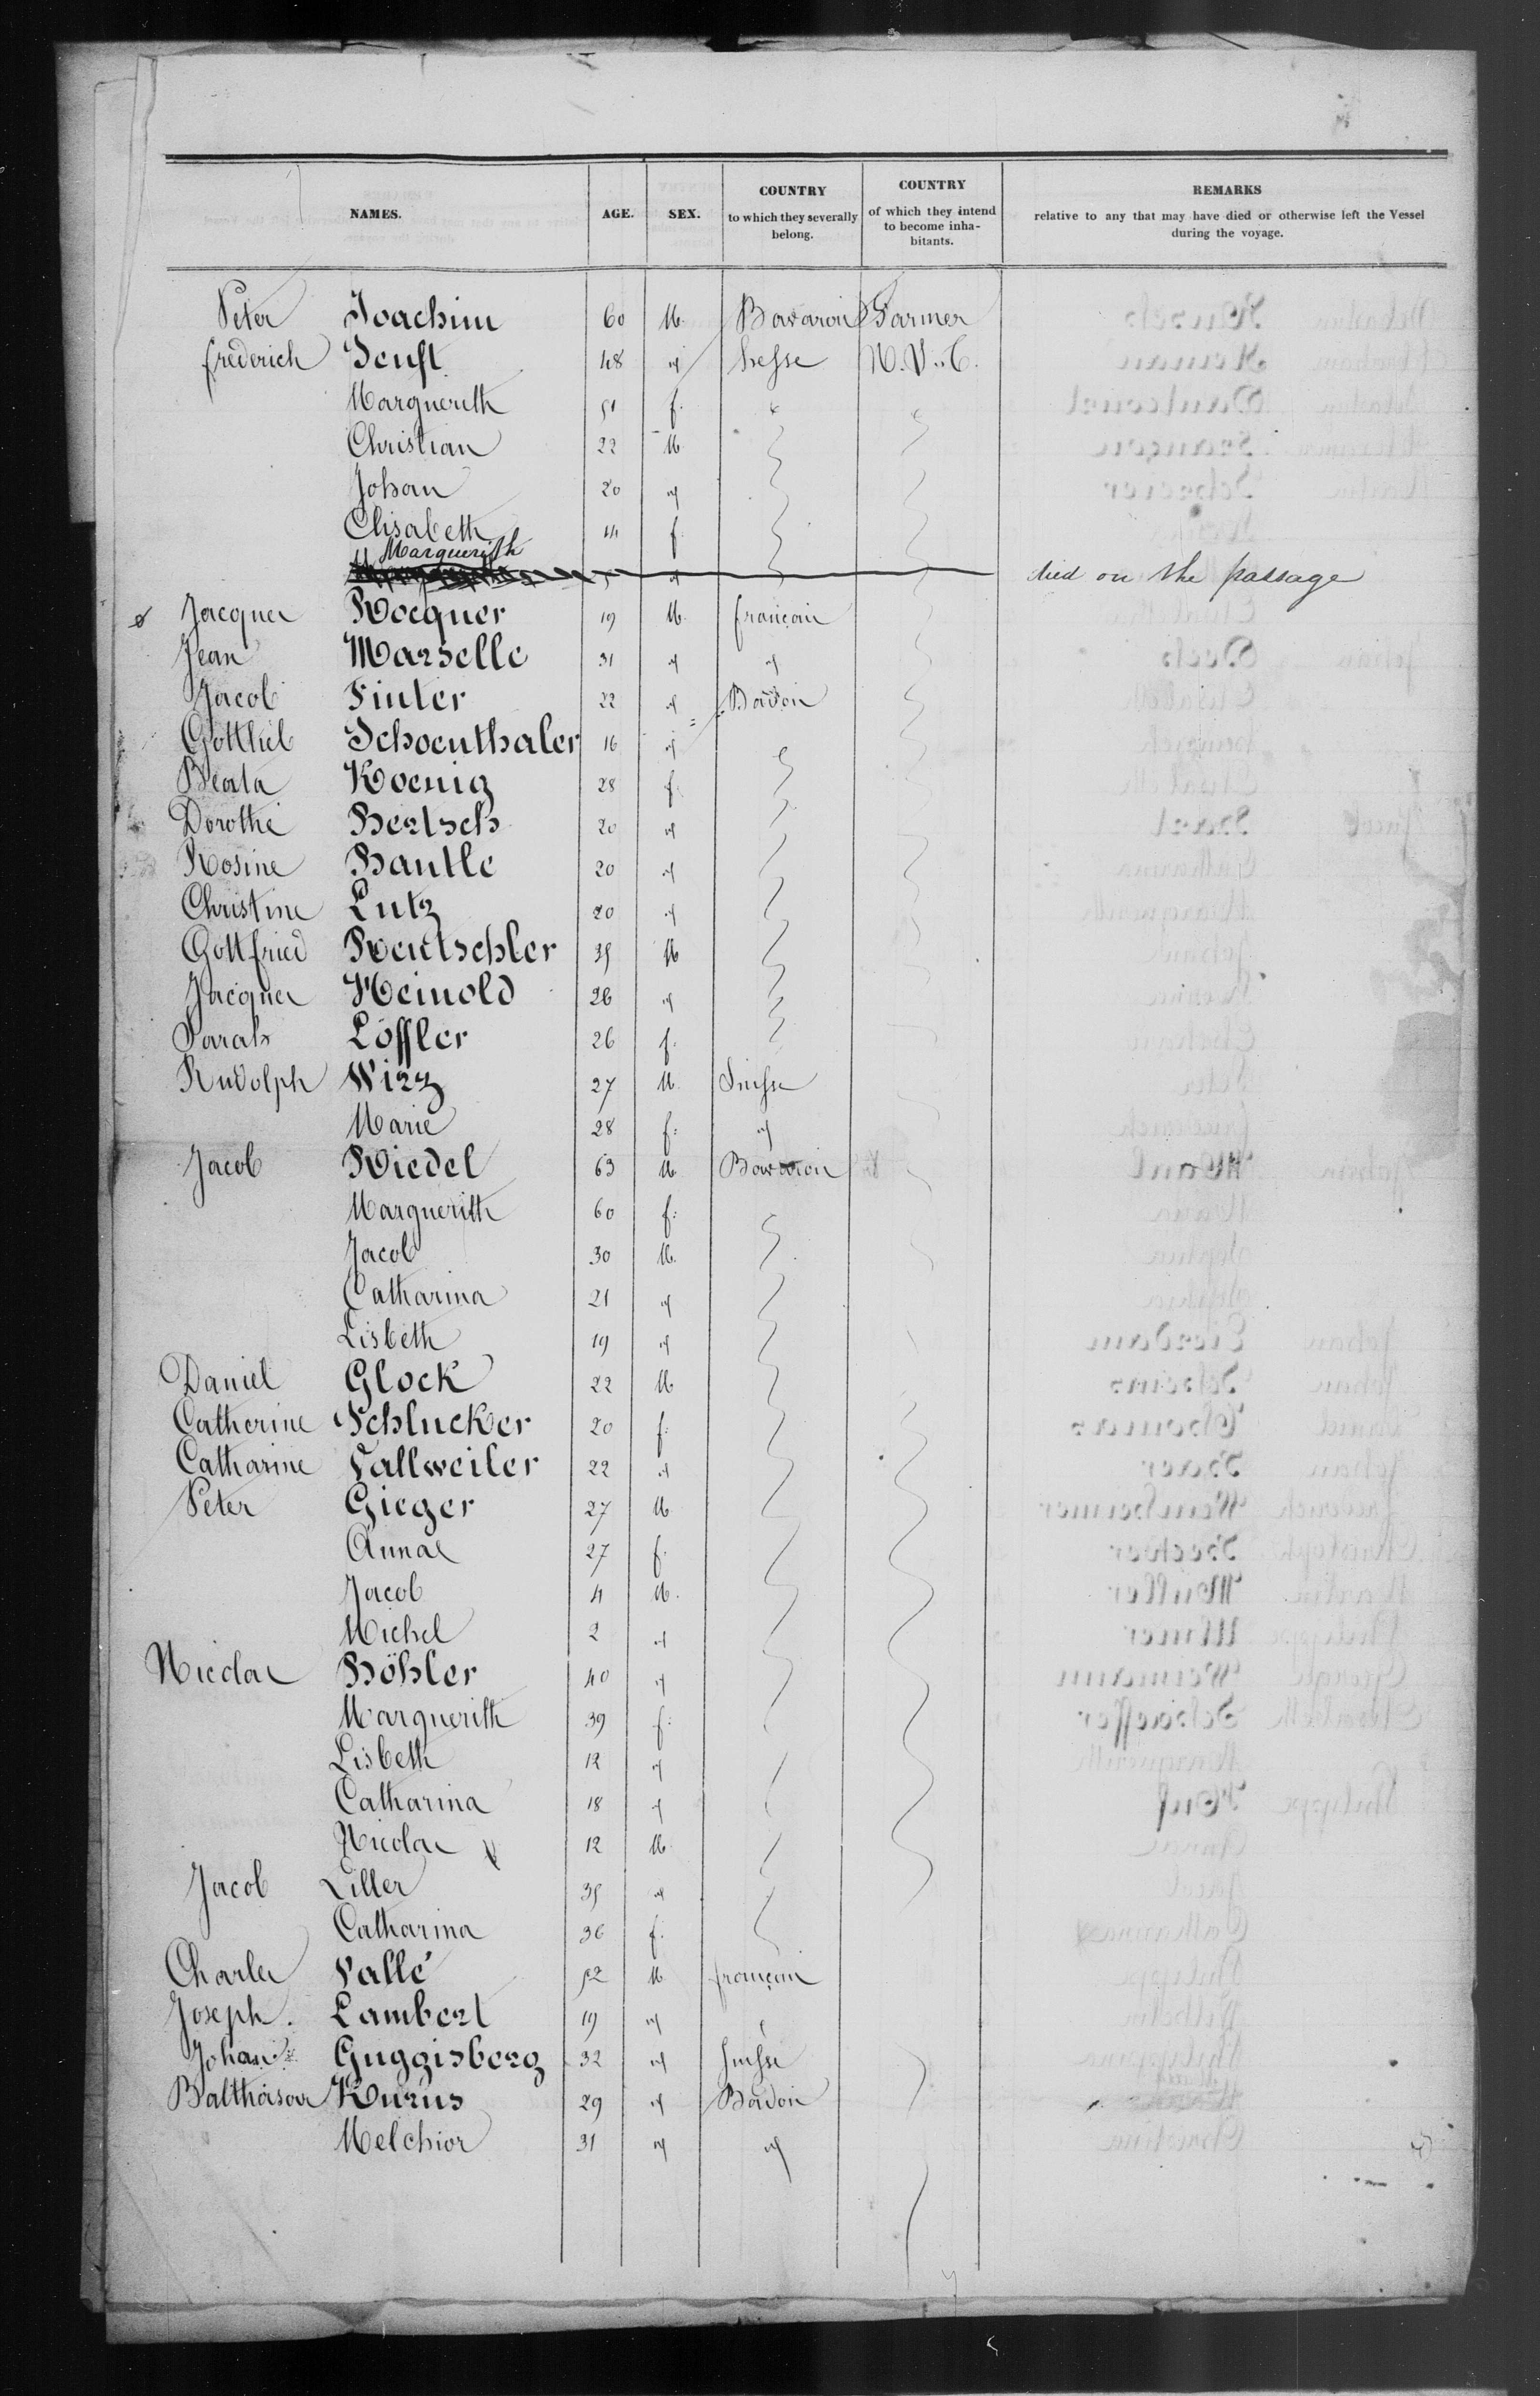 NAMES. AGE. SEX. COUNTRY to which they severally belong. COUNTRY of which they intend to become inhabitants. REMARKS relative to any that may have died or otherwise left the Vessel during the voyage.
Peter Joachim 60 M. Bavaroi Farmer
frederich Senft 48 " hesse
Marguerith 51 f.
Christian 22 M
Johan 20 "
Elisabeth 14 f
Marguerith " died on the passage
Jacques Rocquer 19 M. français
Jean Marselle 31 " "
Jacob Finter 22 " Badois
Gottlieb Schoenthaler 16 "
Beata Koenig 28 f.
Dorothé Bertsch 20 "
Rosine Bantle 20 "
Christine Lutz 20 "
Gottfried Rentschler 35 M
Jacques Heinold 26 "
Sarah Löffler 26 f.
Rudolph Wirz 27 M. Suisse
Marie 28 f: "
Jacob Riedel 63 M Bavaroi
Marguerith 60 f:
Jacob 30 M.
Catharina 21 "
Lisbeth 19 "
Daniel Glock 22 M
Catherine Schlucker 20 f:
Catharine Vallweiler 22 "
Peter Gieger 27 M
Annae 27 f.
Jacob 4 M.
Michel 2 "
Nicolas Höhler 40 "
Marguerith 39 f:
Lisbeth 12 "
Catharina 18 "
Nicolas 12 M
Jacob Liller 35 "
Catharina 36 f.
Charles Vallé 52 M français
Joseph. Lambert 19 "
Johan Guggisberg 32 " suisse
Balthasar Kurus 29 " Badois
Melchior 31 " "